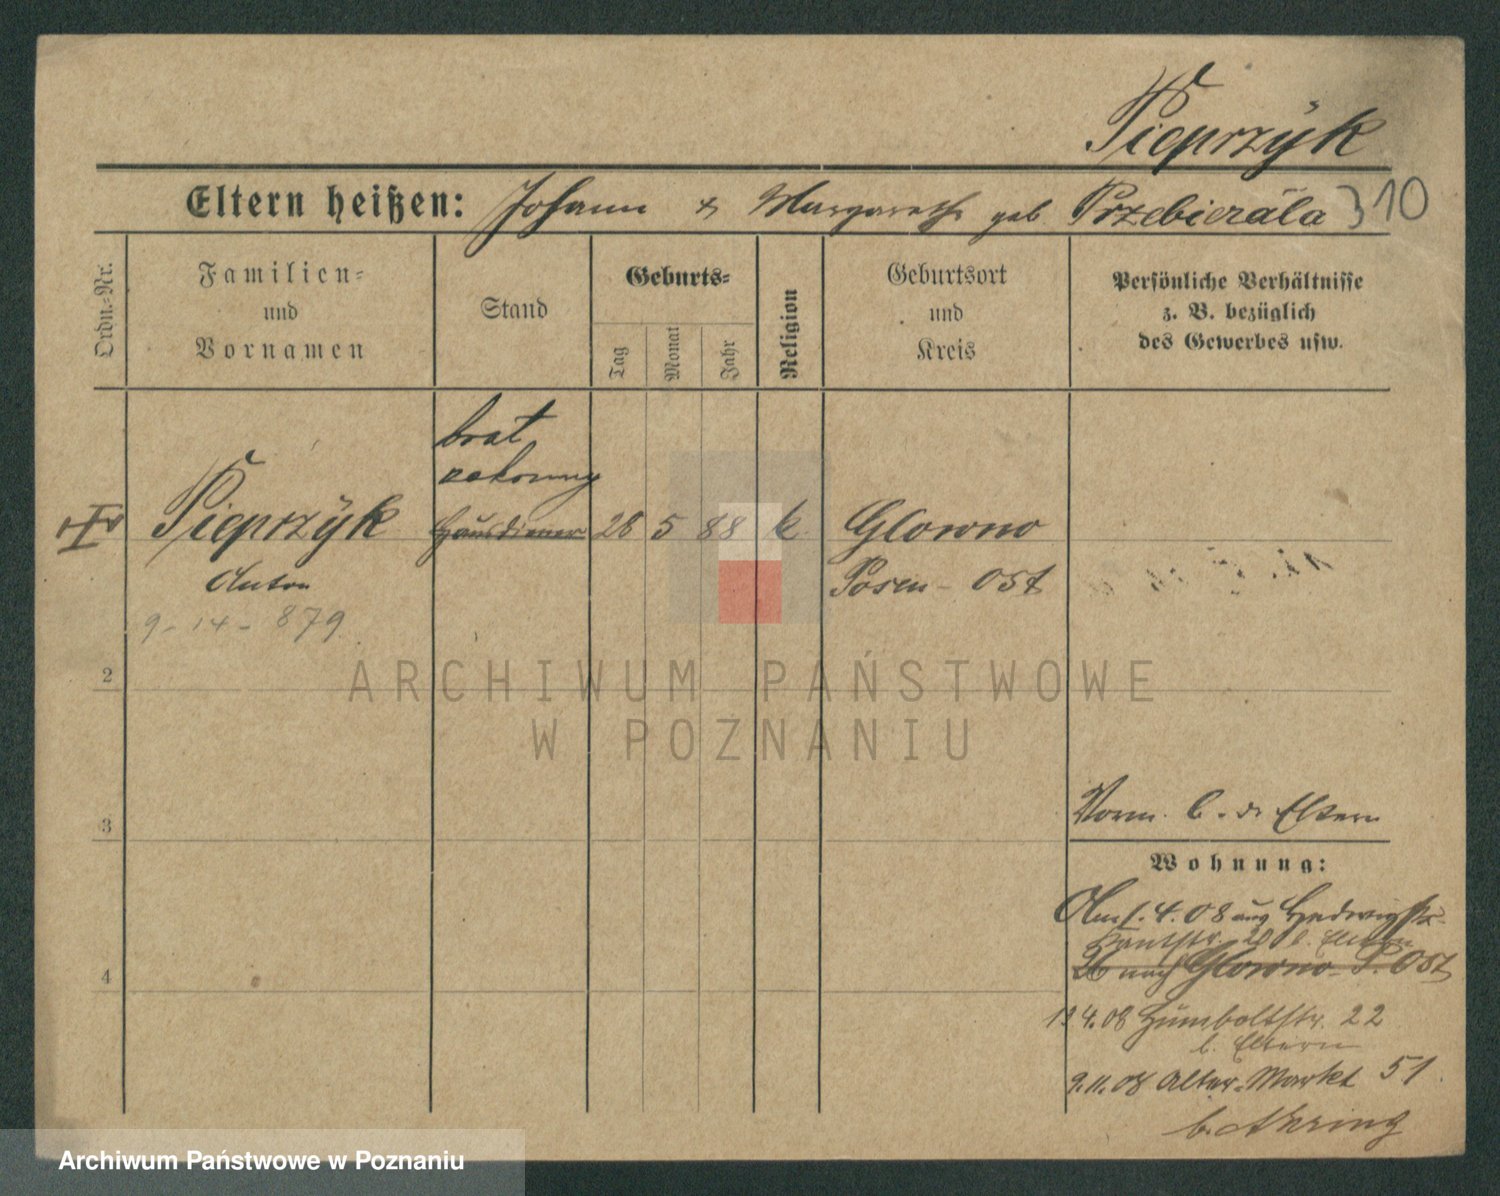 Pieprzÿk
Eltern heißen: Johann & Margarethe geb. Przebierala 310
Ordn.-Nr.
Familien-
und
Vornamen
Stand
Geburts-
Tag
Monat
Jahr
Religion
Geburtsort
und
Kreis
Persönliche Verhältnisse
z. B. bezüglich
des Gewerbes usw.
brat
Pieprzÿk Hausdiener 28 5 88 k Glowno
Anton Posen - Ost
9-14-879
2
3
4
Vorm. b. d. Eltern
Wohnung:
Am 1.4.08 aus Hedwigstr.
26 nach Glowno P. Ost
13.4.08 Humboltstr. 22
b. Eltern
9.11.08 Alter-Markt 51
ARCHIWUM PAŃSTWOWE
W POZNANIU
Archiwum Państwowe w Poznaniu